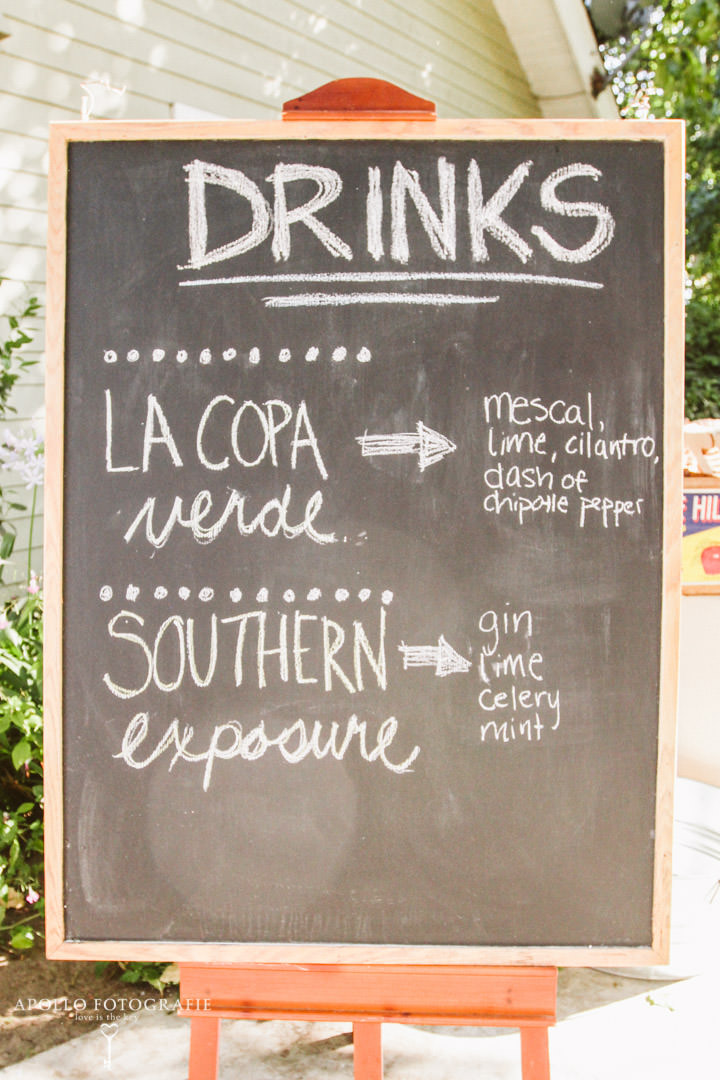 DRINKS
LA COPA
verde
mescal,
lime, cilantro,
dash of
chipotle pepper
SOUTHERN
exposure
gin
lime
celery
mint
HIL
APOLLO FOTOGRAFIE
love is the key